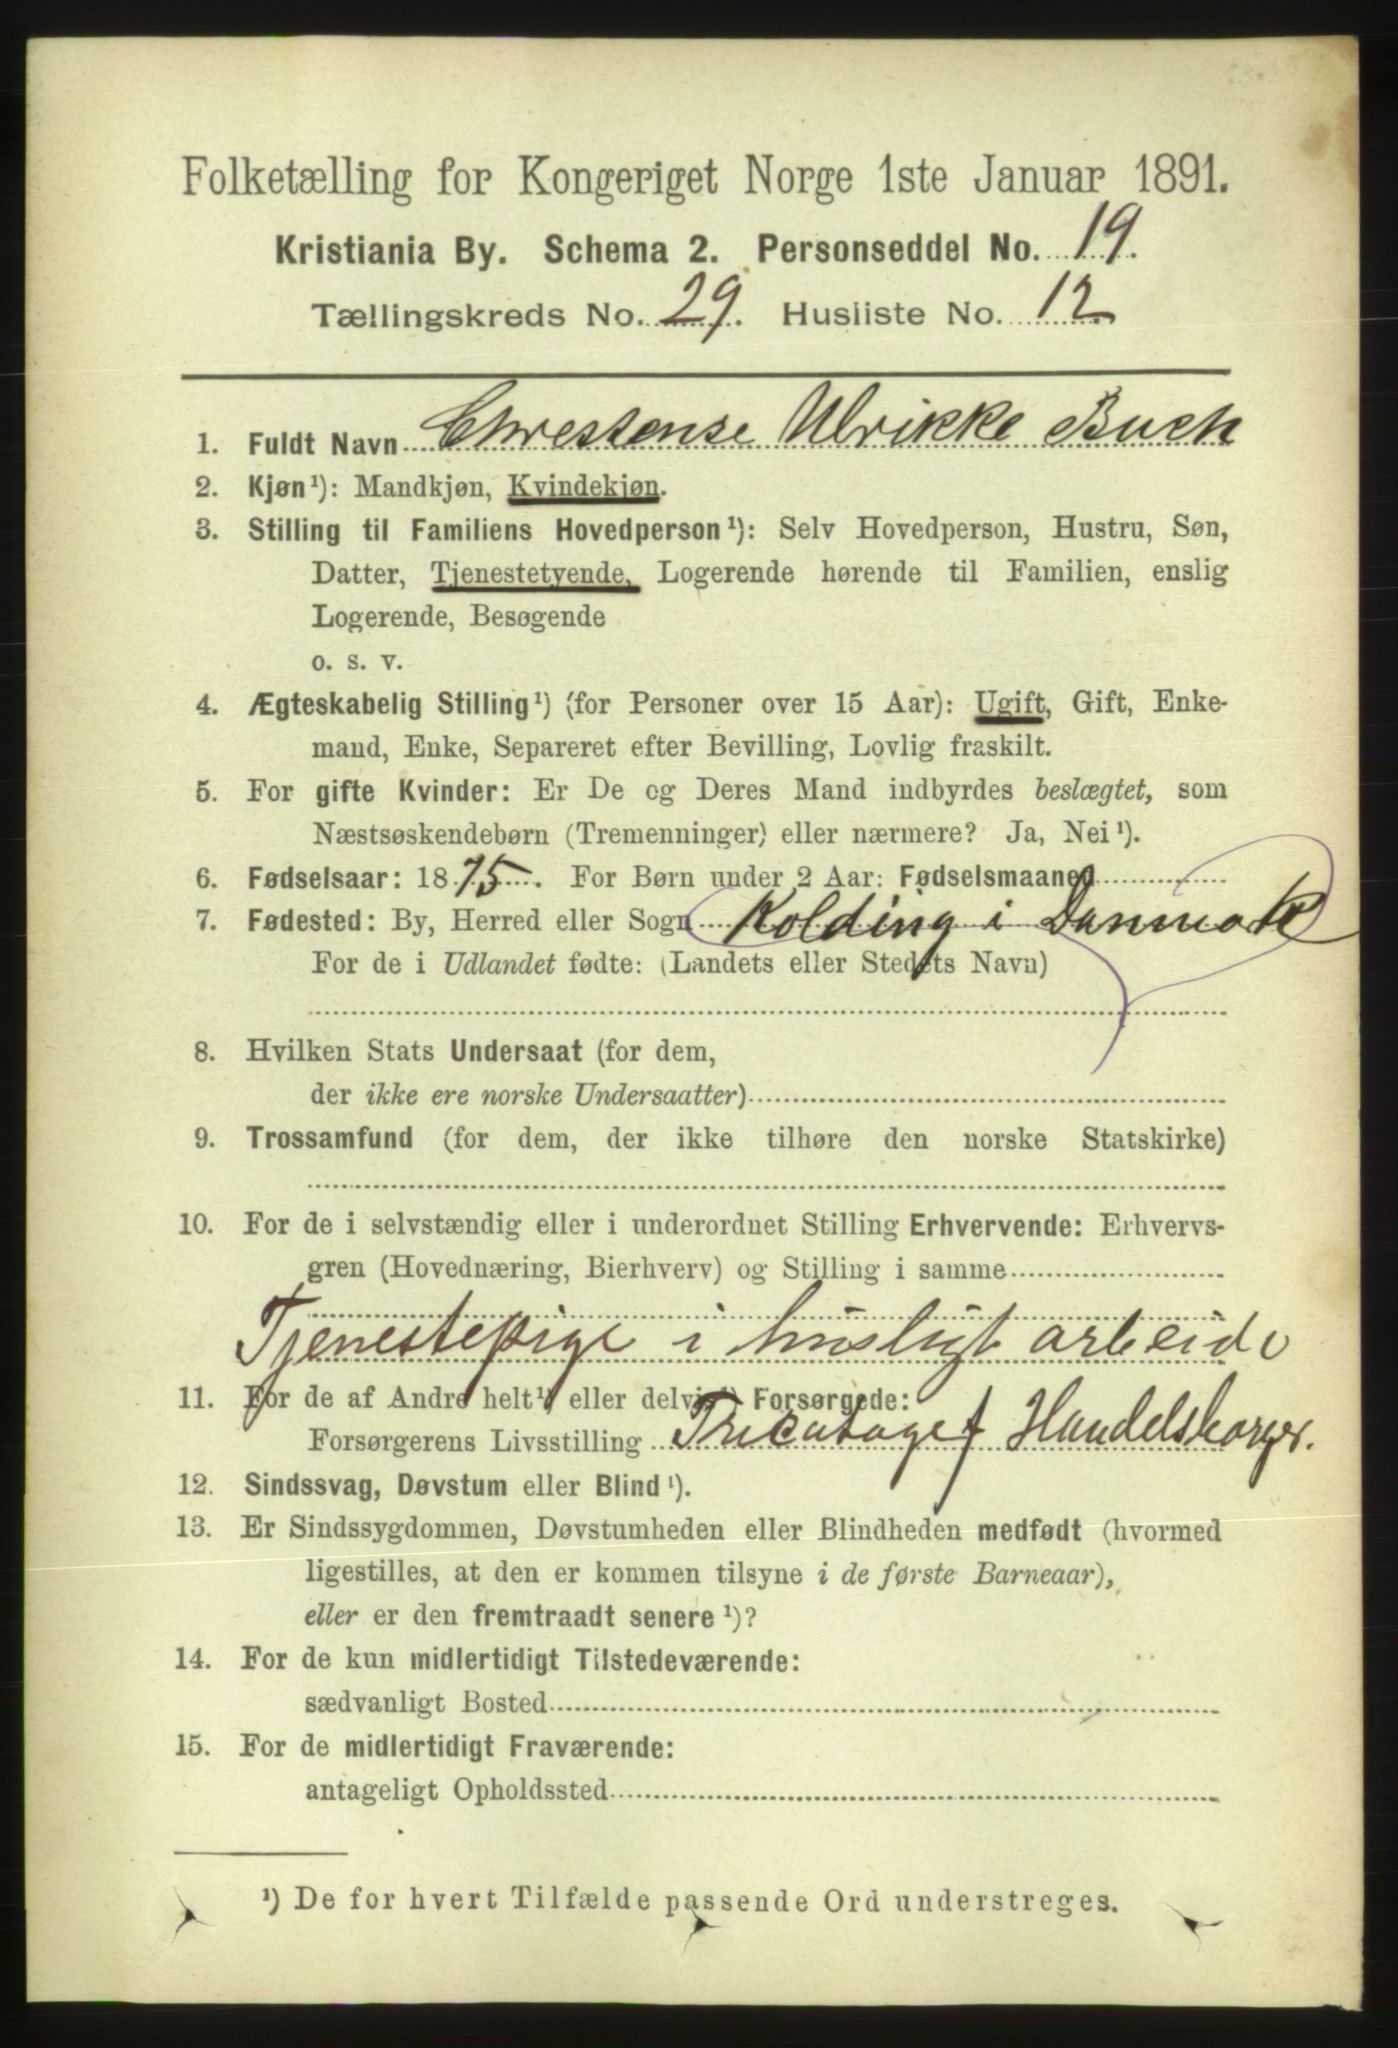 Folketælling for Kongeriget Norge 1ste Januar 1891.
Kristiania By. Schema 2. Personseddel No. 19.
Tællingskreds No. 29. Husliste No. 12
1. Fuldt Navn Chrestense Ulrikke Buch
2. Kjøn¹): Mandkjøn, Kvindekjøn.
3. Stilling til Familiens Hovedperson¹): Selv Hovedperson, Hustru, Søn,
Datter, Tjenestetyende, Logerende hørende til Familien, enslig
Logerende, Besøgende
o. s. v.
4. Ægteskabelig Stilling¹) (for Personer over 15 Aar): Ugift, Gift, Enke-
mand, Enke, Separeret efter Bevilling, Lovlig fraskilt.
5. For gifte Kvinder: Er De og Deres Mand indbyrdes beslægtet, som
Næstsøskendebørn (Tremenninger) eller nærmere? Ja, Nei¹).
6. Fødselsaar: 1875. For Børn under 2 Aar: Fødselsmaaned
7. Fødested: By, Herred eller Sogn Kolding i Danmark
For de i Udlandet fødte: (Landets eller Stedets Navn)
8. Hvilken Stats Undersaat (for dem,
der ikke ere norske Undersaatter)
9. Trossamfund (for dem, der ikke tilhøre den norske Statskirke)
10. For de i selvstændig eller i underordnet Stilling Erhvervende: Erhvervs-
gren (Hovednæring, Bierhverv) og Stilling i samme
Tjenestepige i husligt arbeide
11. For de af Andre helt¹) eller delvis¹) Forsørgede:
Forsørgerens Livsstilling Handelsborger.
12. Sindssvag, Døvstum eller Blind¹).
13. Er Sindssygdommen, Døvstumheden eller Blindheden medfødt (hvormed
ligestilles, at den er kommen tilsyne i de første Barneaar),
eller er den fremtraadt senere¹)?
14. For de kun midlertidigt Tilstedeværende:
sædvanligt Bosted
15. For de midlertidigt Fraværende:
antageligt Opholdssted
¹) De for hvert Tilfælde passende Ord understreges.